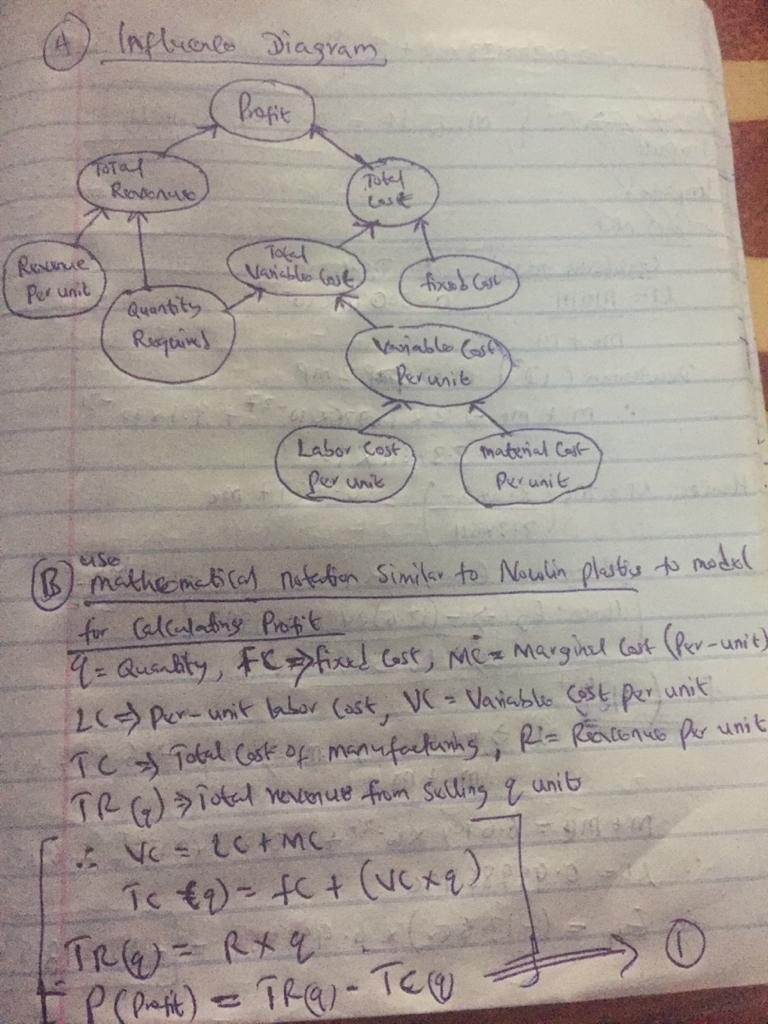 A Influence Diagram
Profit
Total
Revenue
Total
Cost
Revenue
Per unit
Total
Variable Cost
fixed Cost
Quantity
Required
Variable Cost
Per unit
Labor Cost
Per unit
material Cost
Per unit
B use mathematical notation Similar to Nowlin plastics to model
for Calculating Profit
q = Quantity, FC => fixed Cost, MC = Marginal Cost (Per-unit)
LC => Per-unit labor Cost, VC = Variable Cost per unit
TC => Total Cost of manufacturing, R = Revenue per unit
TR(q) => Total revenue from selling q unit
∴ VC = LC + MC
TC (q) = FC + (VC x q)
TR(q) = R x q
P (Profit) = TR(q) - TC(q) 1